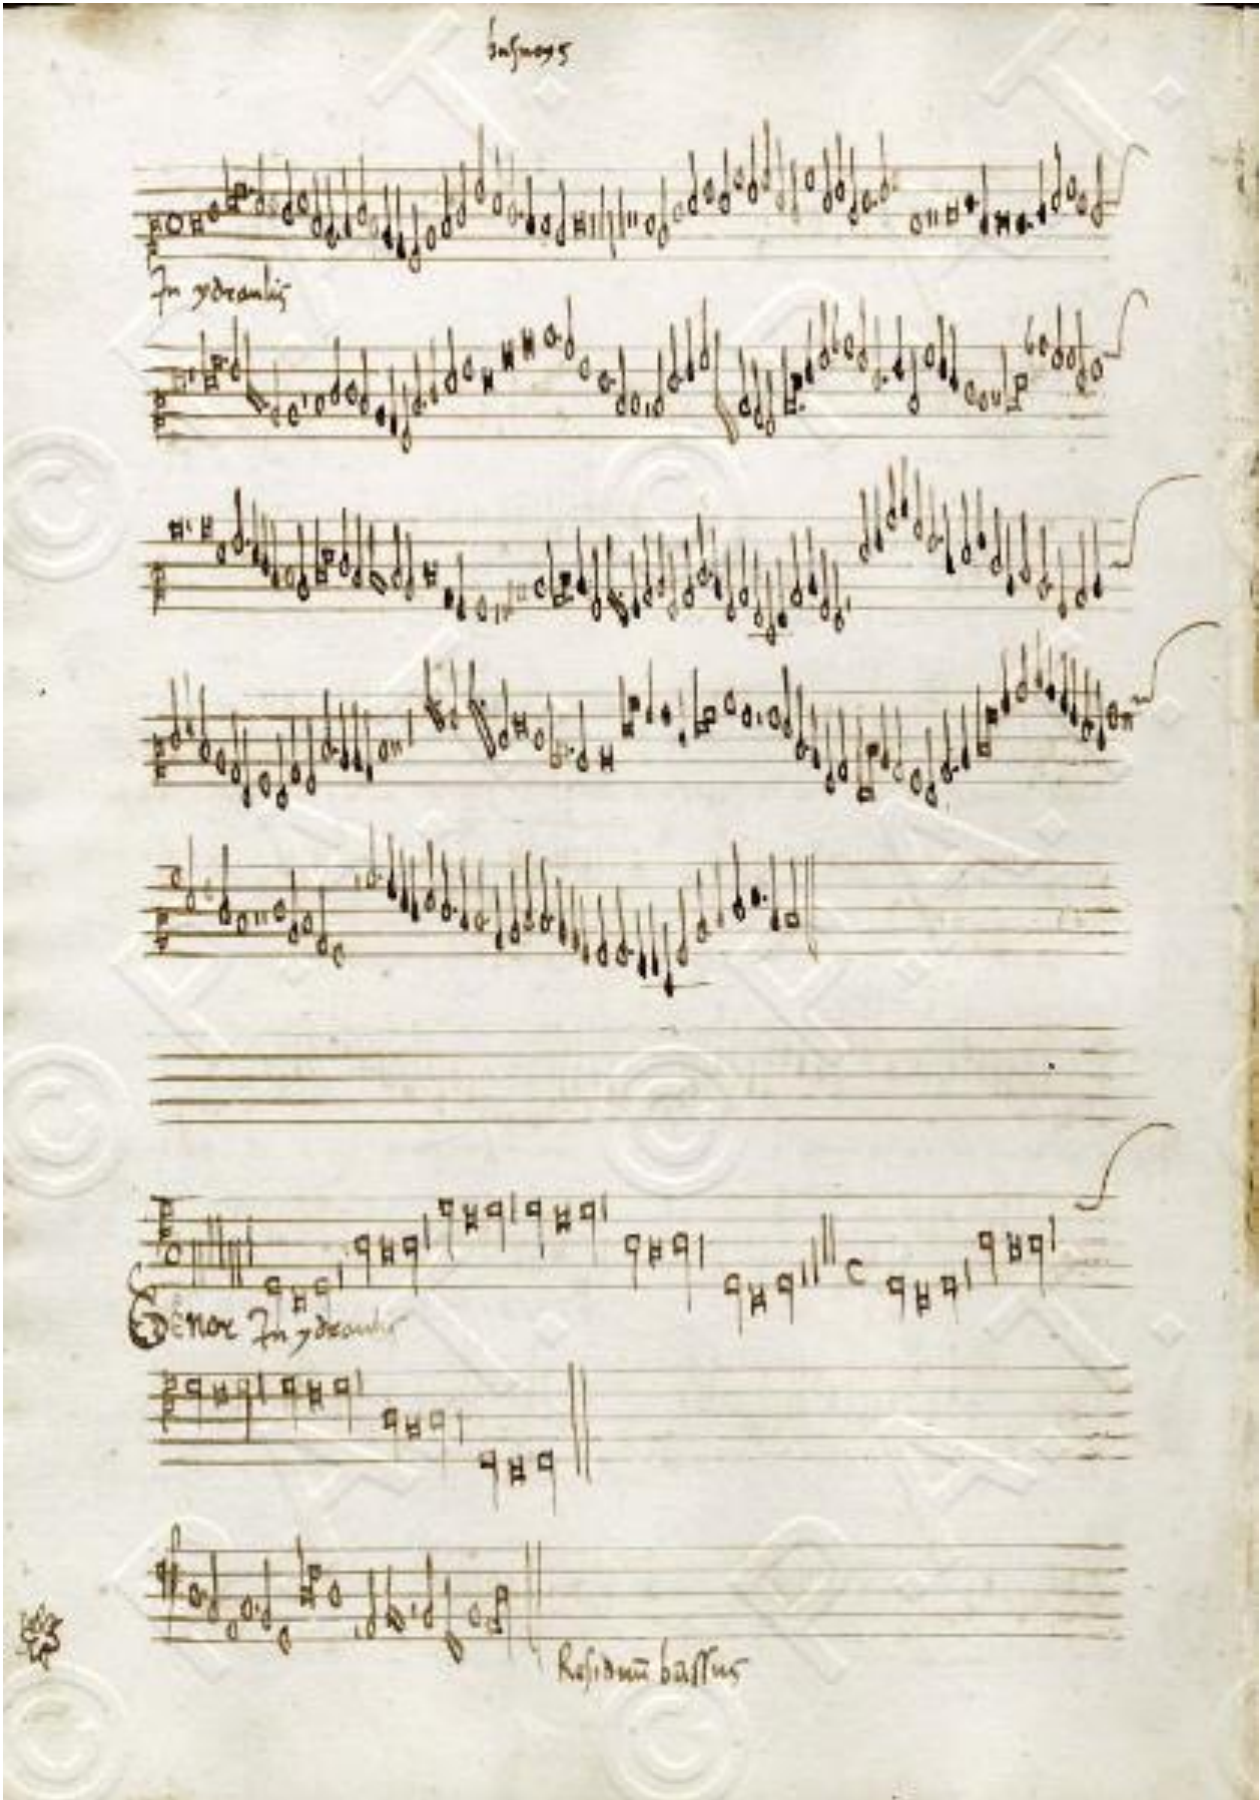 busnoys
In ydraulis
Tenor In ydraulis
Residuū bassus